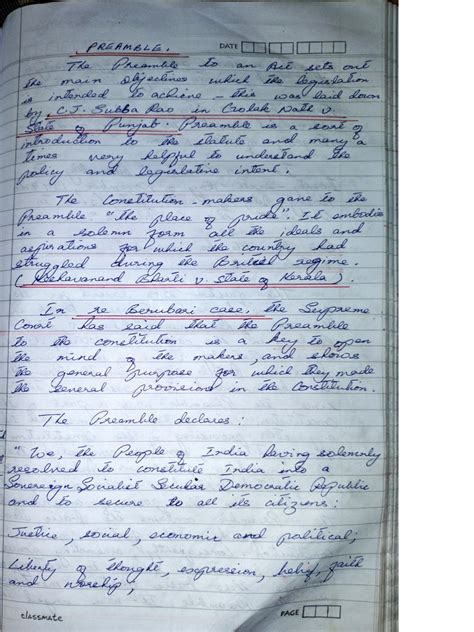 PREAMBLE.
DATE
The Preamble to an Act sets out
the main objectives which the legislation
is intended to achieve - this was laid down
by C.J. Subba Rao in Golak Nath v.
State of Punjab. Preamble is a sort of
introduction to the statute and many a
times very helpful to understand the
policy and legislative intent.
The Constitution-makers gave to the
Preamble "the place of pride". It embodies
in a solemn form all the ideals and
aspirations for which the country had
struggled during the British regime.
(Keshavanand Bharti v. State of Kerala).
In re Berubari case, the Supreme
Court has said that the Preamble
to the constitution is a key to open
the mind of the makers, and shows
the general purpose for which they made
the several provisions in the Constitution.
The Preamble declares:
"We, the People of India having solemnly
resolved to constitute India into a
Sovereign Socialist Secular Democratic Republic
and to secure to all its citizens:
Justice, social, economic and political;
Liberty of thought, expression, belief, faith
and worship;
classmate
PAGE